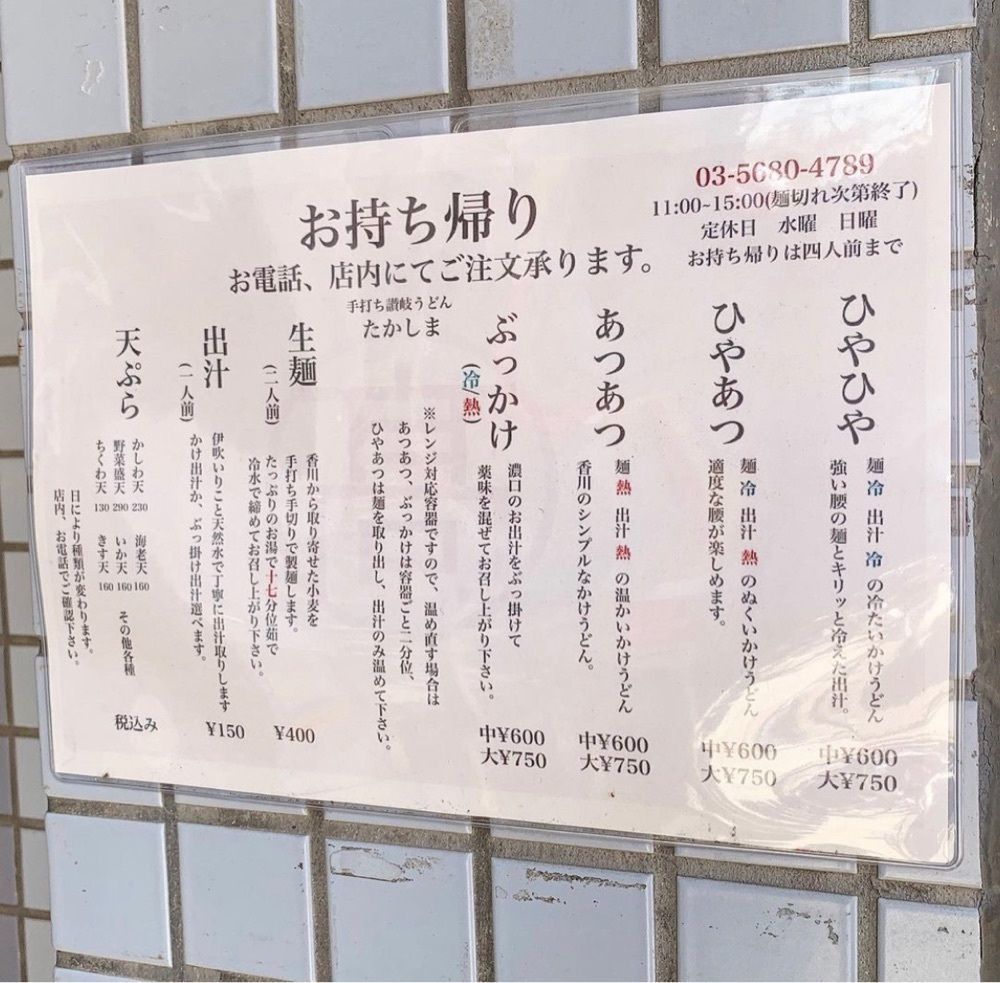 03-5680-4789
11:00~15:00(麺切れ次第終了)
定休日　水曜　日曜
お持ち帰りは四人前まで
お持ち帰り
お電話、店内にてご注文承ります。
手打ち讃岐うどん
たかしま
ひやひや
麺 冷 出汁 冷 の冷たいかけうどん
強い腰の麺とキリッと冷えた出汁。
中¥600
大¥750
ひやあつ
麺 冷 出汁 熱 のぬくいかけうどん
適度な腰が楽しめます。
中¥600
大¥750
あつあつ
麺 熱 出汁 熱 の温かいかけうどん
香川のシンプルなかけうどん。
中¥600
大¥750
ぶっかけ
(冷/熱)
濃口のお出汁をぶっ掛けて
薬味を混ぜてお召し上がり下さい。
中¥600
大¥750
※レンジ対応容器ですので、温め直す場合は
あつあつ、ぶっかけは容器ごと二分位、
ひやあつは麺を取り出し、出汁のみ温めて下さい。
生麺
(二人前)
香川から取り寄せた小麦を
手打ち手切りで製麺します。
たっぷりのお湯で十七分位茹で
冷水で締めてお召し上がり下さい。
¥400
出汁
(一人前)
伊吹いりこと天然水で丁寧に出汁取りします
かけ出汁か、ぶっ掛け出汁選べます。
¥150
天ぷら
かしわ天 230 海老天 160
野菜盛天 290 いか天 160 その他各種
ちくわ天 130 きす天 160
日により種類が変わります。
店内、お電話でご確認下さい。
税込み